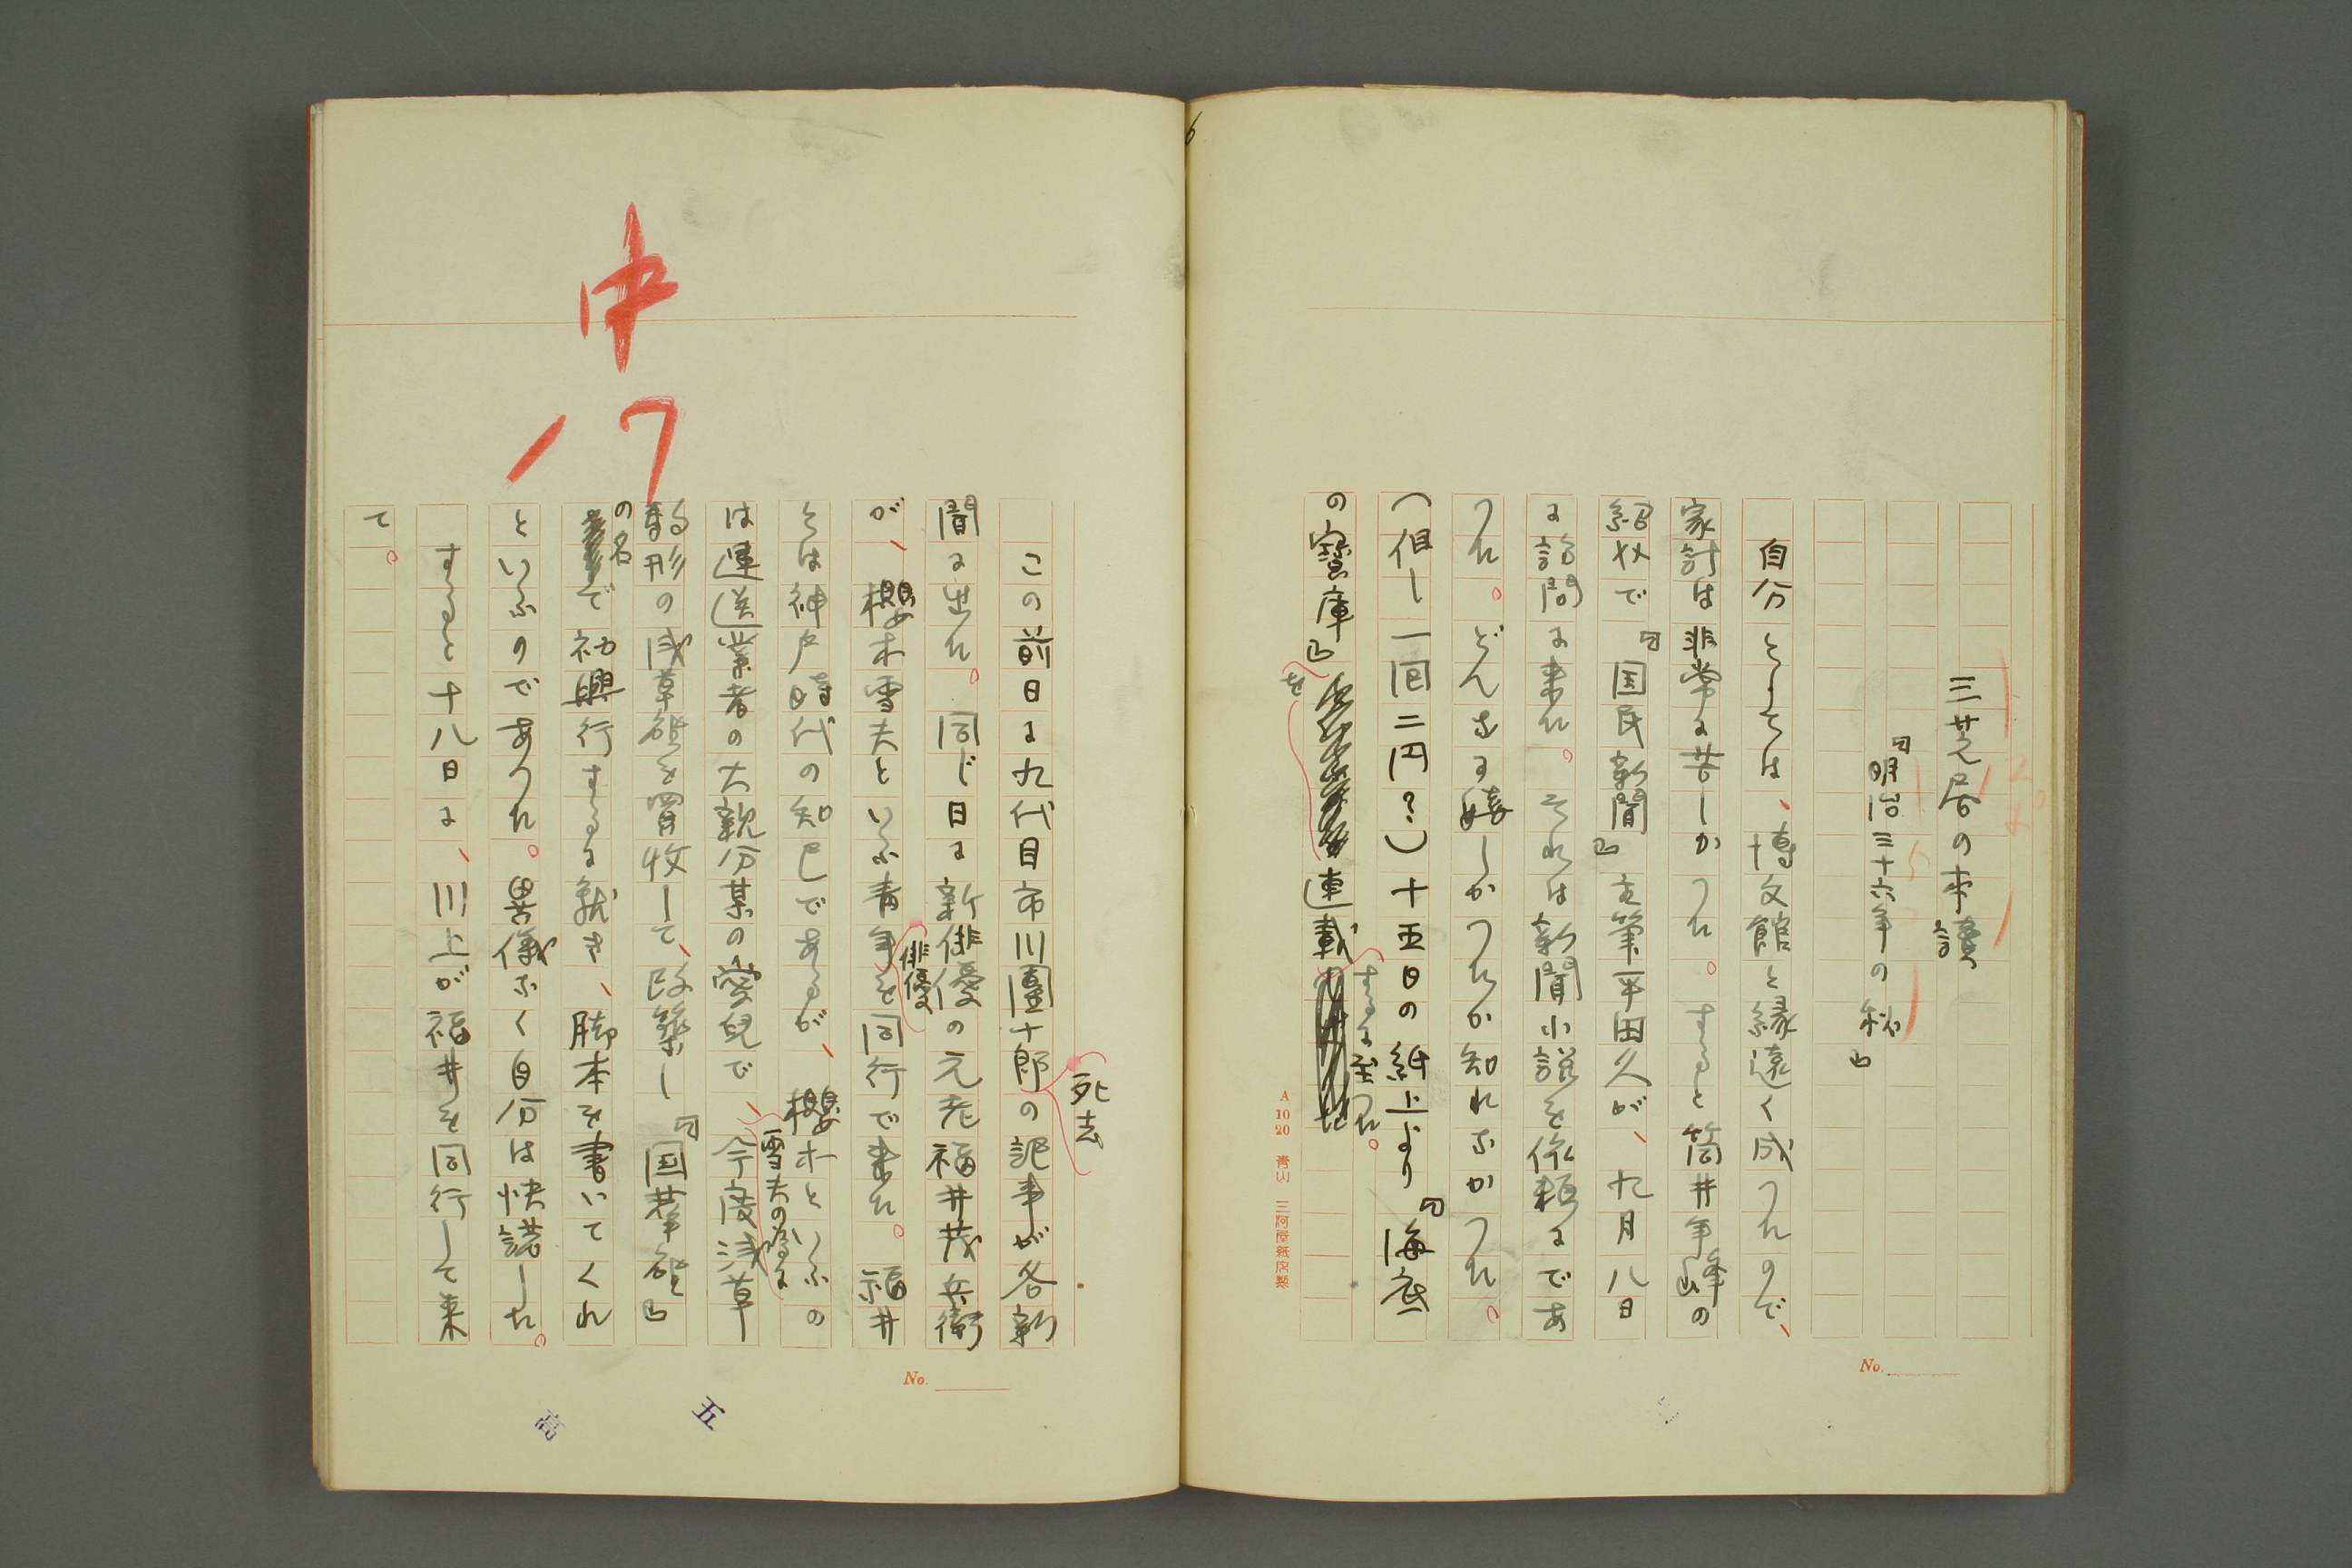 三芝居の本讀
『明治三十六年の秋』
自分としては、博文館と縁遠く成つたので、
家計は非常に苦しかつた。すると筒井年峰の
紹介で『国民新聞』主筆平田久が、九月八日
に訪問に来た。それは新聞小説を依頼にであ
つた。どんなに嬉しかつたか知れなかつた。
(但し一回二円?)十五日の紙上より『海底
の寳庫』を連載するに至つた。
A 10 20 青山 三河屋紙店製
No.
この前日に九代目市川團十郎死去の記事が各新
聞に出た。同じ日に新俳優の元老福井茂兵衛
が、櫻木雪夫といふ青年俳優を同行で来た。福井
とは神戸時代の知己であるが、櫻木といふの
は運送業者の大親分某の愛兒で、雪夫の為に今度浅草
駒形の浅草座を買收して、改築し『国華座』
の名で初興行するに就き、脚本を書いてくれ
といふのであつた。異儀なく自分は快諾した。
すると十八日に、川上が福井を同行して来
て。
No.
五
中
17